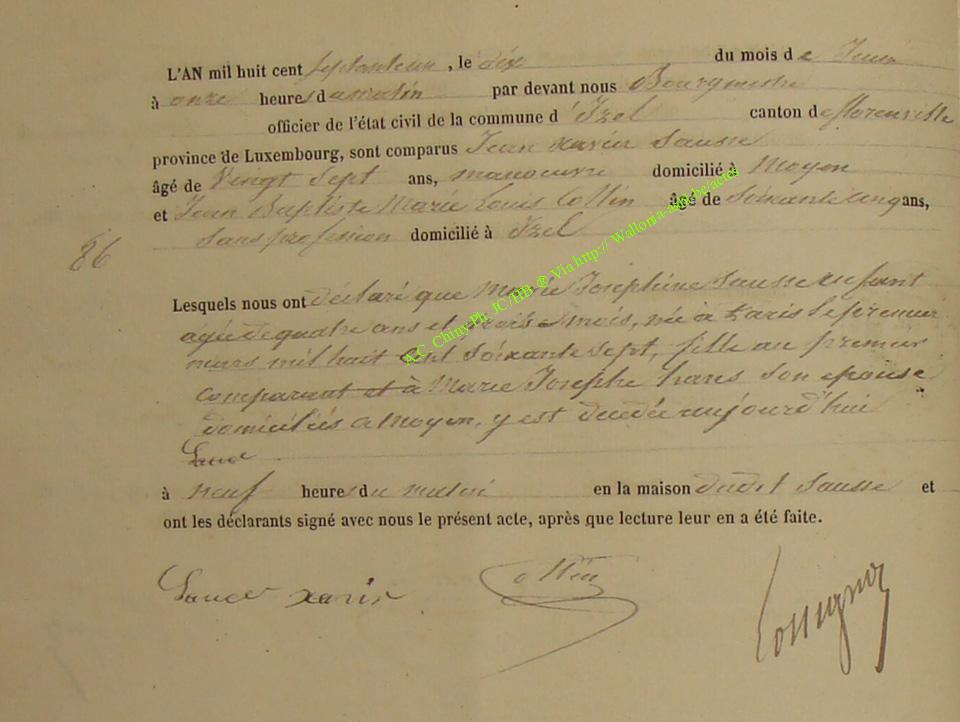 L'AN mil huit cent septante un, le dix du mois de Juin
à onze heures du matin par devant nous Bourgmestre
officier de l'état civil de la commune d'Izel canton de florenville
province de Luxembourg, sont comparus Jean xavier Sausse
âgé de Vingt Sept ans, manoeuvre domicilié à Moyen
et Jean Baptiste Marie Louis Collin âgé de Soixante cinq ans,
Sans profession domicilié à Izel
86
Lesquels nous ont déclaré que Marie Joséphine Sausse enfant
agée de quatre ans et trois mois, née à Paris le premier
mars mil huit cent soixante sept, fille au premier
comparant et à Marie Josephe hans Son epouse
domiciliés a Moyen, y est decedée aujourd'hui
à neuf heures du matin en la maison dudit Sausse et
ont les déclarants signé avec nous le présent acte, après que lecture leur en a été faite.
Collin
A.C. Chiny Ph. JC/HB @ Via http:// Wallonia-